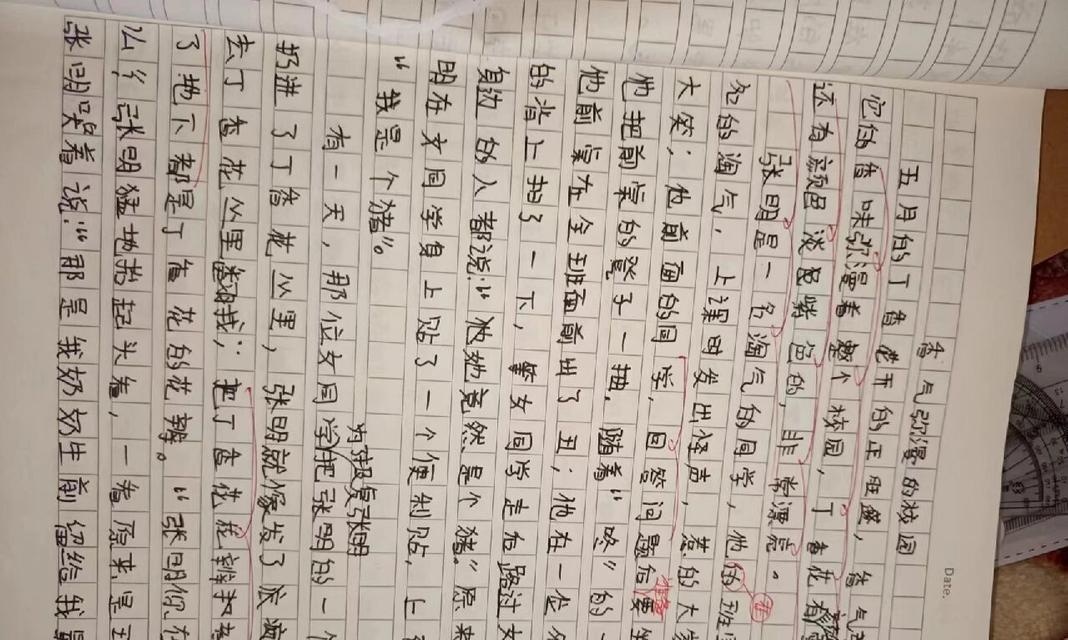 Date.
香气弥漫的校园
五月的丁香花开的正旺盛，香气
它的香味弥漫着整个校园，丁香花有
还有颜色淡色紫色的，非常漂亮。
张明是一名淘气的同学，他的班
名的淘气，上课时发出怪声，惹的大
大笑；他前面的同学，回答问题后要坐
他把前桌的凳子一抽，随着“咚”的一
他前桌在全班面前出了丑；他在一位
的背上拍了一下，等女同学走在路过
身边的人都说：“她竟然是个猪”原来
明在女同学身上贴了一个便利贴，上
“我是个猪”。
为报复张明
有一天，那位女同学把张明的一个
扔进了丁香花丛里，张明就像发了疯
去丁香花丛里翻找；把丁香花花瓣扣
了地下都是丁香花的花瓣。“张明你在
么”张明猛地抬起头看，一看原来是王
张明哭着说：“那是我奶奶生前留给我最